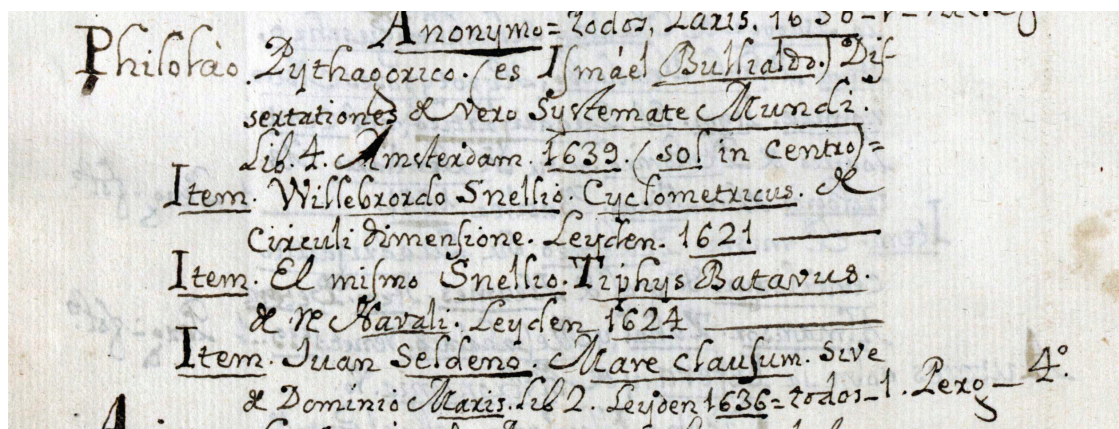 Anonymo= todos, Paris. 1638-1-
Philolao Pythagorico. (es Ismáel Bullialdo.) Dis-
sertationes de vero Systemate Mundi.
Lib. 4. Amsterdam. 1639. (sol in centro)=
Item. Willebrordo Snellio. Cyclometricus. de
Circuli dimensione. Leyden. 1621
Item. El mismo Snellio. Tiphys Batavus.
de re Navali. Leyden 1624
Item. Juan Seldeno. Mare clausum. sive
de Dominio Maris. Lib 2. Leyden 1636= todos-1. Pero- 4º.